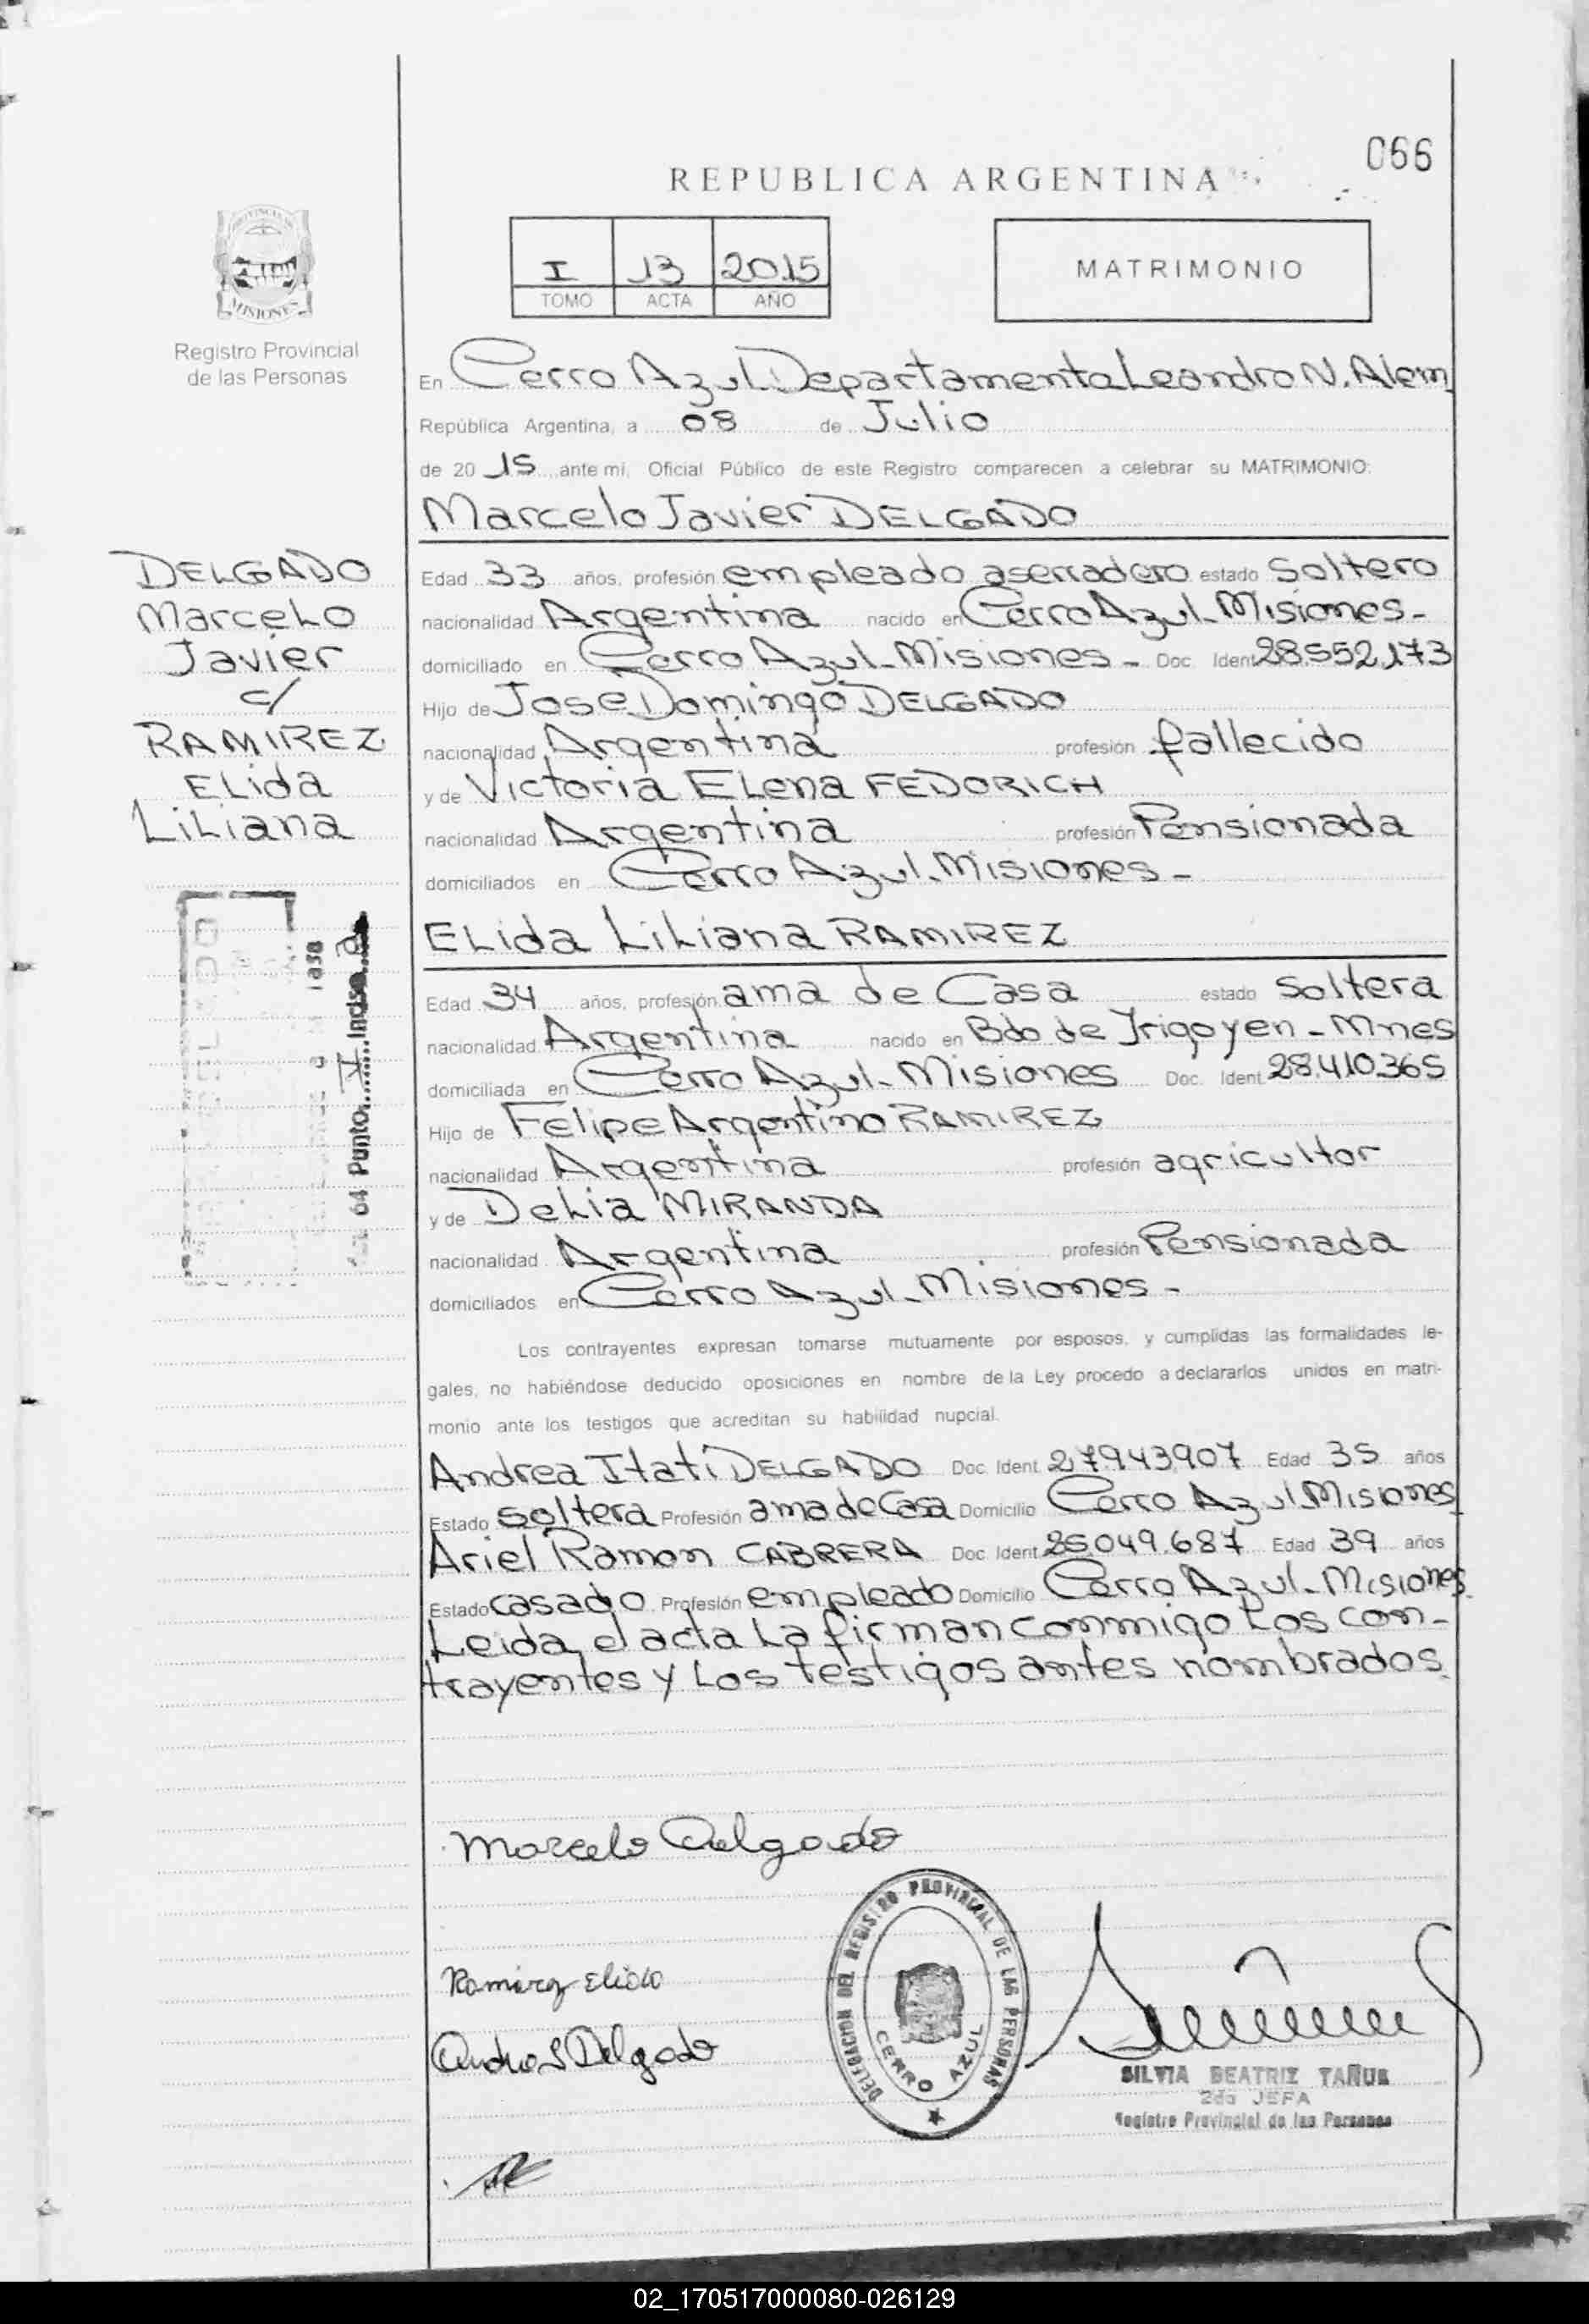 066
REPUBLICA ARGENTINA
PROVINCIA DE
MISIONES
Registro Provincial
de las Personas
I 13 2015
TOMO ACTA AÑO
MATRIMONIO
En Cerro Azul Departamento Leandro N. Alem
República Argentina, a 08 de Julio
de 20 15 ante mi, Oficial Público de este Registro comparecen a celebrar su MATRIMONIO:
Marcelo Javier DELGADO
DELGADO
Marcelo
Javier
c/
RAMIREZ
Elida
Liliana
Edad 33 años, profesión empleado aserradero estado Soltero
nacionalidad Argentina nacido en Cerro Azul - Misiones -
domiciliado en Cerro Azul - Misiones - Doc. Ident. 28.552.173
Hijo de Jose Domingo DELGADO
nacionalidad Argentina profesión fallecido
y de Victoria Elena FEDORICH
nacionalidad Argentina profesión Pensionada
domiciliados en Cerro Azul - Misiones -
Elida Liliana RAMIREZ
Edad 34 años, profesión ama de Casa estado Soltera
nacionalidad Argentina nacido en Bdo de Irigoyen - Mnes
domiciliada en Cerro Azul - Misiones Doc. Ident. 28.410.365
Hijo de Felipe Argentino RAMIREZ
nacionalidad Argentina profesión agricultor
y de Delia MIRANDA
nacionalidad Argentina profesión Pensionada
domiciliados en Cerro Azul - Misiones -
64 Punto V Inciso a
Los contrayentes expresan tomarse mutuamente por esposos, y cumplidas las formalidades le-
gales, no habiéndose deducido oposiciones en nombre de la Ley procedo a declararlos unidos en matri-
monio ante los testigos que acreditan su habilidad nupcial.
Andrea Itati DELGADO Doc. Ident. 27.943.907 Edad 35 años
Estado Soltera Profesión ama de Casa Domicilio Cerro Azul Misiones
Ariel Ramon CABRERA Doc. Ident. 25.049.687 Edad 39 años
Estado Casado Profesión empleado Domicilio Cerro Azul - Misiones
Leida el acta La firman conmigo Los con-
trayentes y Los testigos antes nombrados.
Marcelo Delgado
Ramirez Elida
Andrea I Delgado
DELEGACION DEL REGISTRO PROVINCIAL DE LAS PERSONAS
CERRO AZUL
SILVIA BEATRIZ TAÑUK
2da JEFA
Registro Provincial de las Personas
02_170517000080-026129